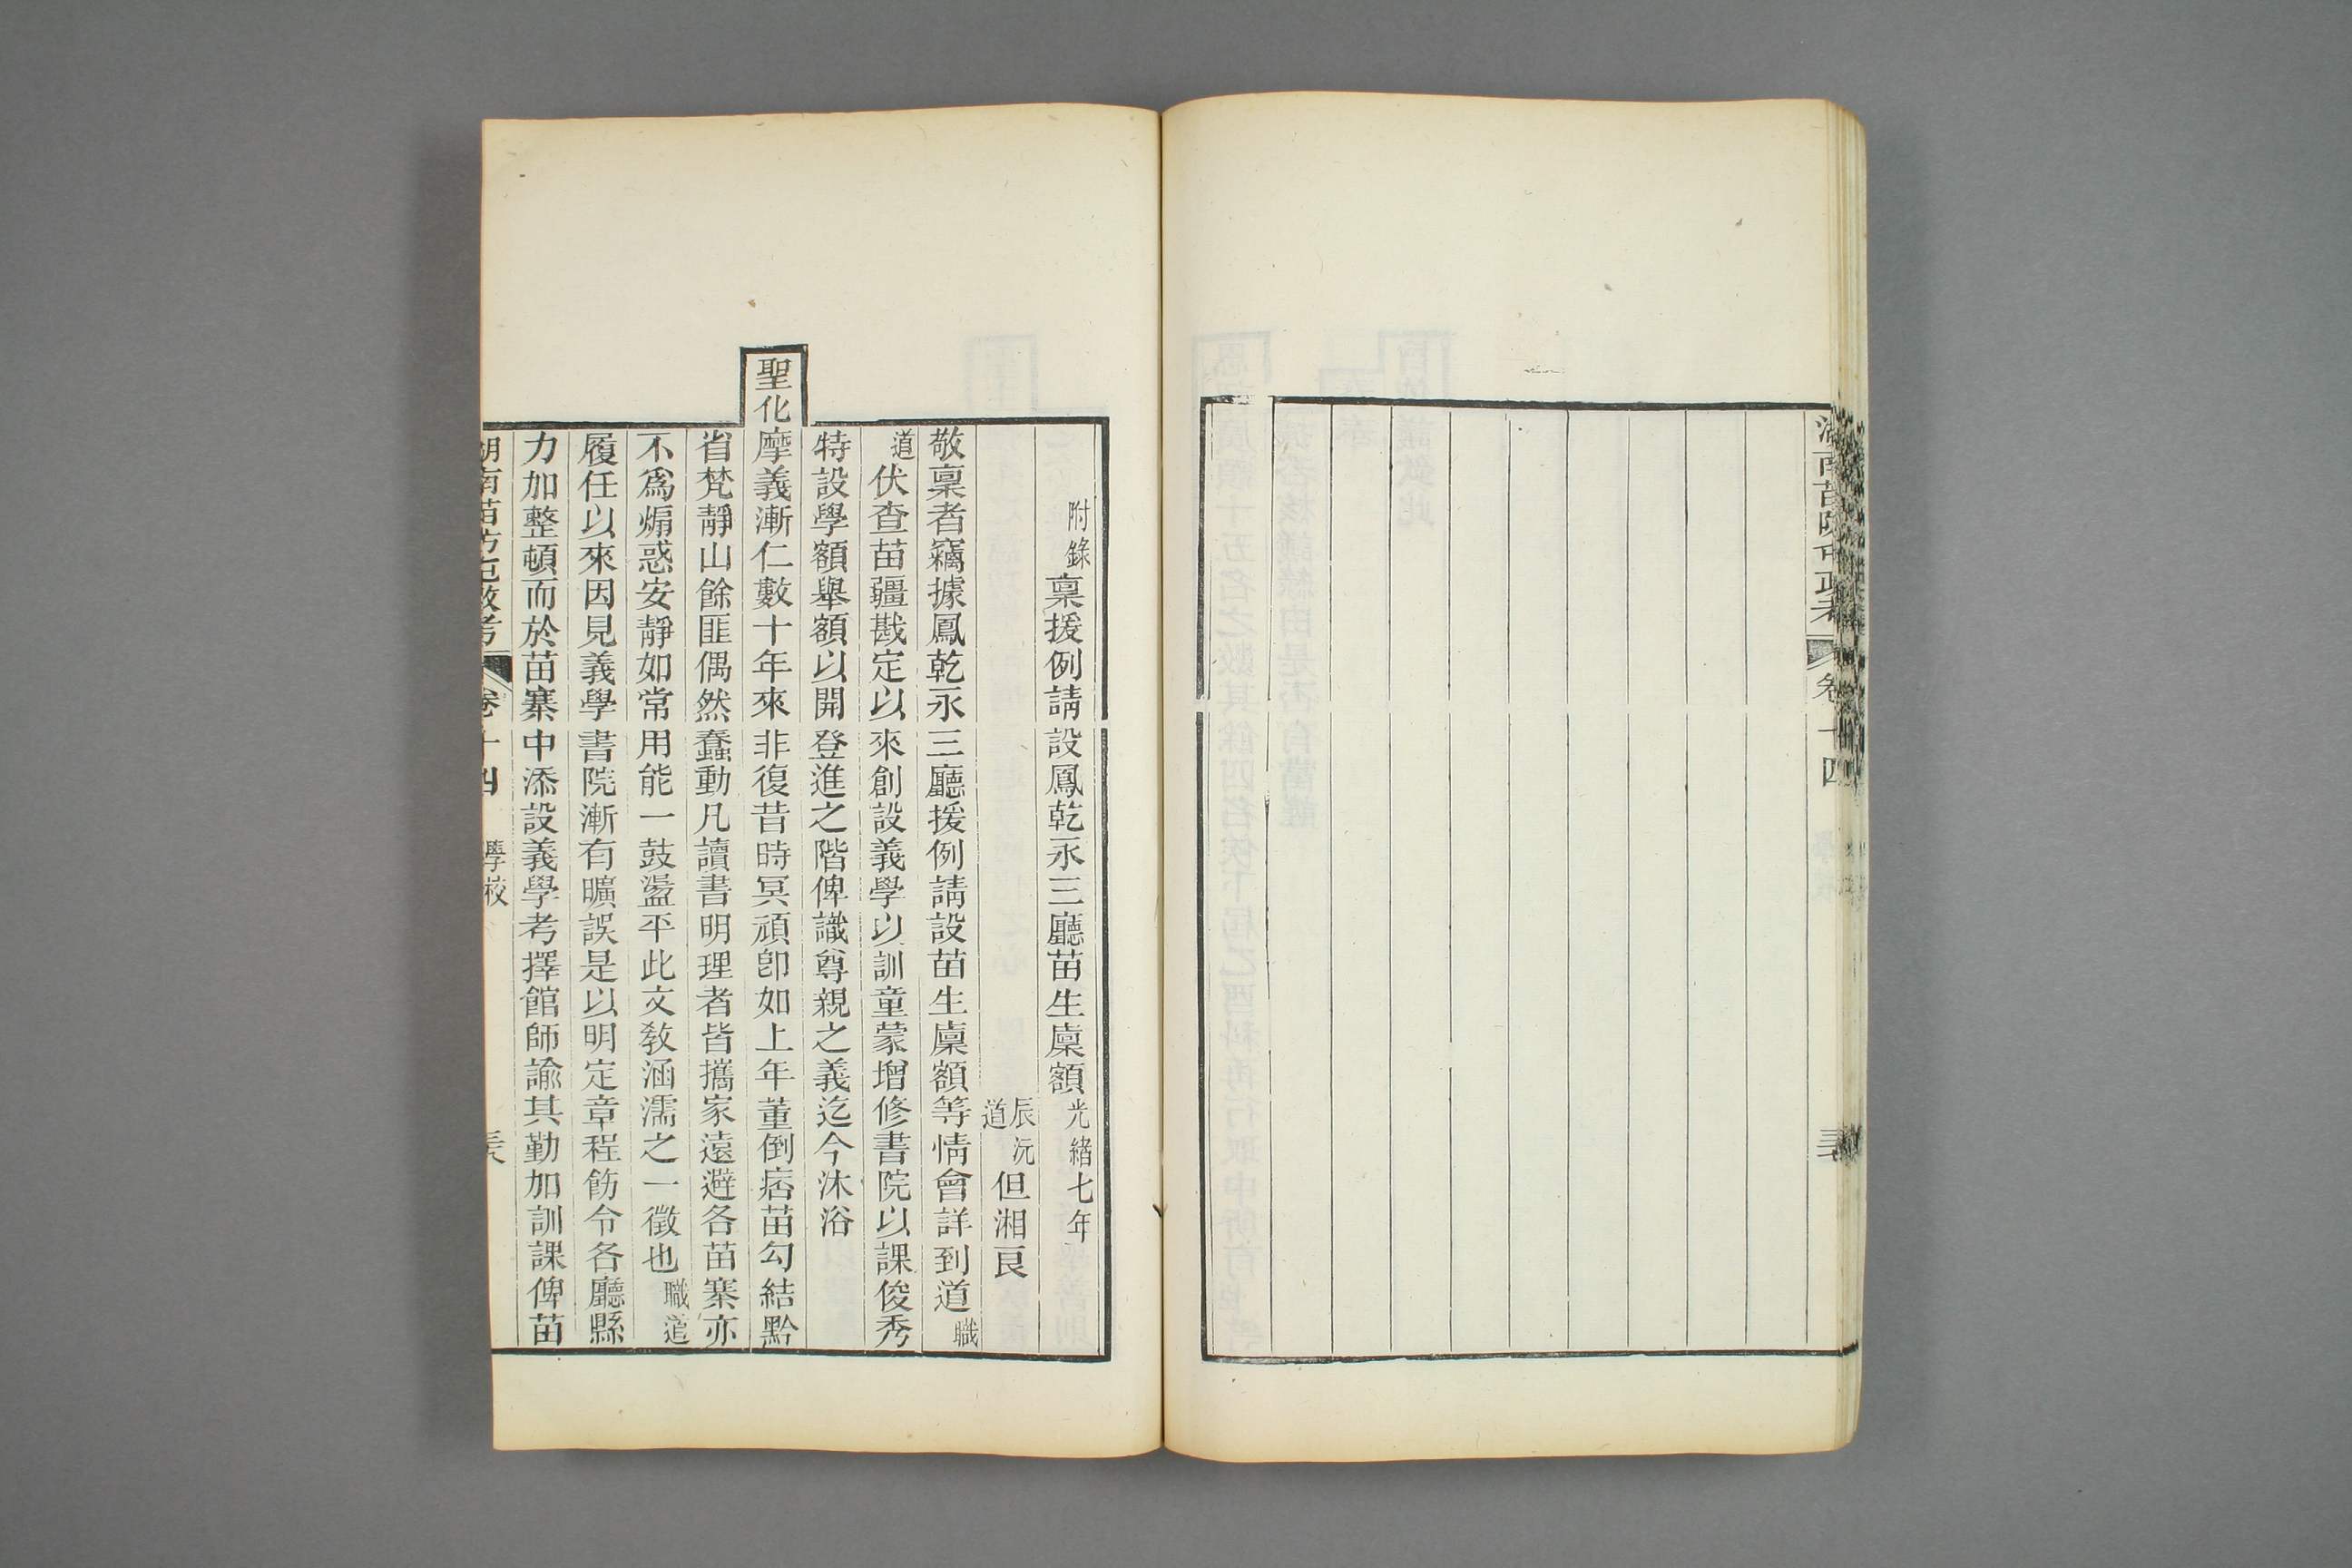 湖南苗防屯政考
卷十四
附錄稟援例請設鳳乾永三廳苗生廩額光緒七年
辰沅道但湘良
敬稟者竊據鳳乾永三廳援例請設苗生廩額等情會詳到道職
道伏查苗疆戡定以來創設義學以訓童蒙增修書院以課俊秀
特設學額舉額以開登進之階俾識尊親之義迄今沐浴
聖化摩義漸仁數十年來非復昔時冥頑卽如上年董倒痞苗勾結黔
省梵靜山餘匪偶然蠢動凡讀書明理者皆攜家遠避各苗寨亦
不爲煽惑安靜如常用能一鼓盪平此文敎涵濡之一徵也職道
履任以來因見義學書院漸有曠誤是以明定章程飭令各廳縣
力加整頓而於苗寨中添設義學考擇館師諭其勤加訓課俾苗
湖南苗防屯政考 卷十四 學校